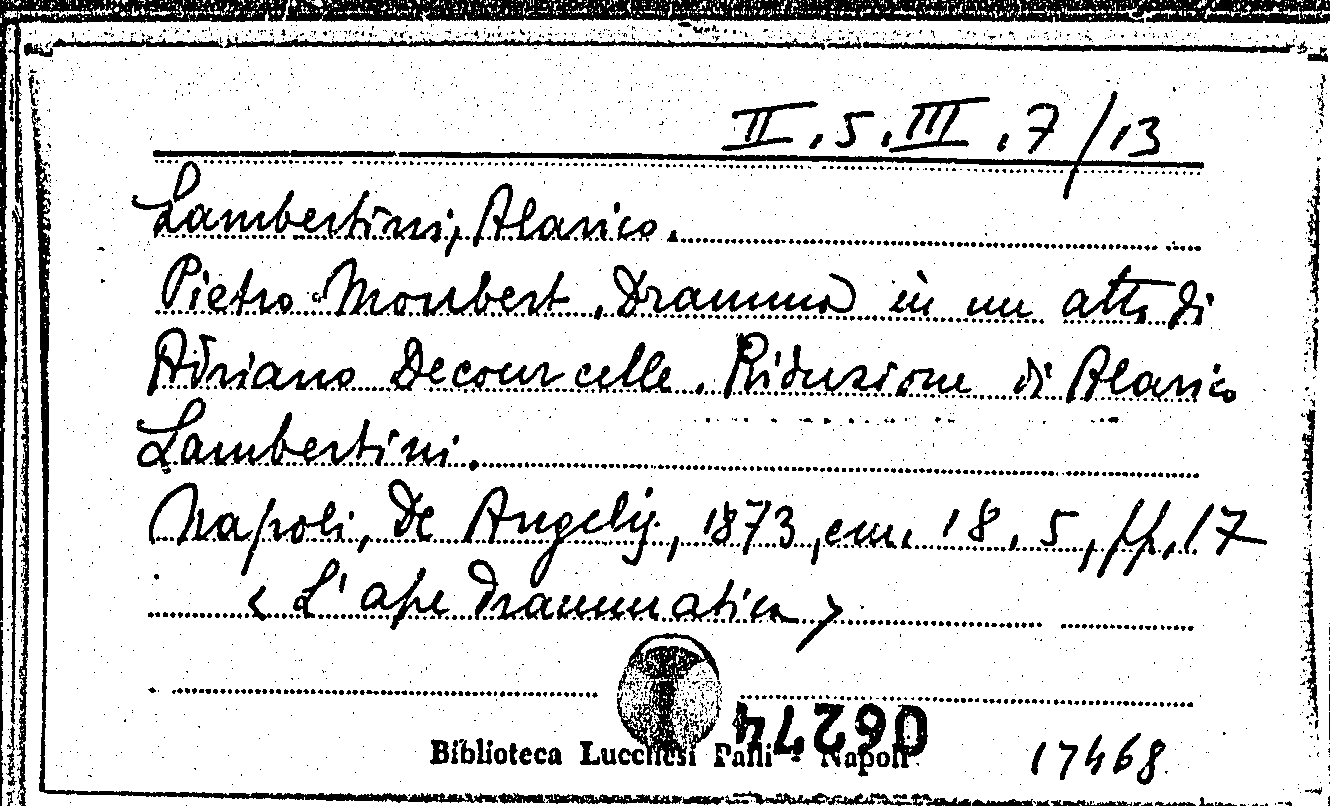 II.5.III.7/13
Lambertini, Alarico.
Pietro Monbert. Dramma in un atto di
Adriano Decourcelle. Riduzione di Alarico
Lambertini.
Napoli, De Angelis, 1873, cm. 18,5, pp. 17
< L'ape drammatica >
06274
Biblioteca Lucchesi Palli - Napoli
17468